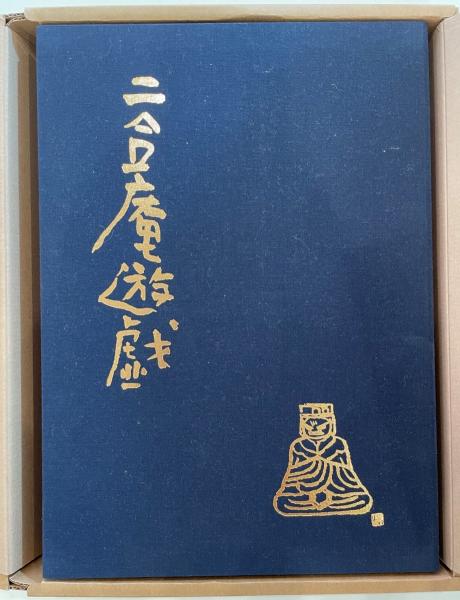 二合庵遊戯